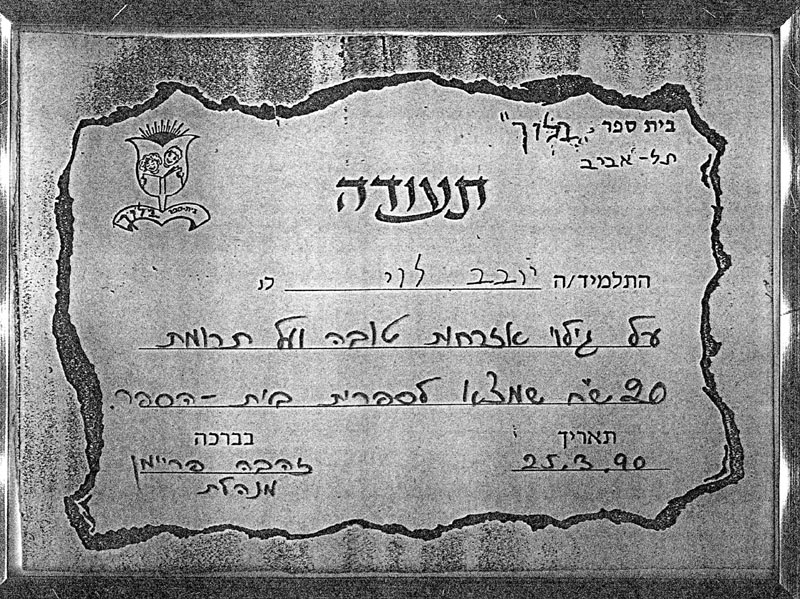 בית ספר "בלוך"
תל-אביב
בית-ספר בלוך
תעודה
התלמיד/ה יובב לוי
על גילוי אזרחות טובה ועל תרומת
20 ש"ח שמצא לספרית בית-הספר.
תאריך בברכה
25.3.90 זהבה פריימן
מנהלת